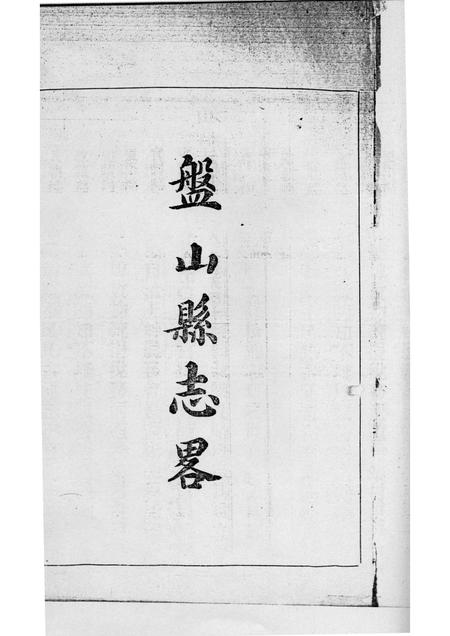 盤山縣志畧